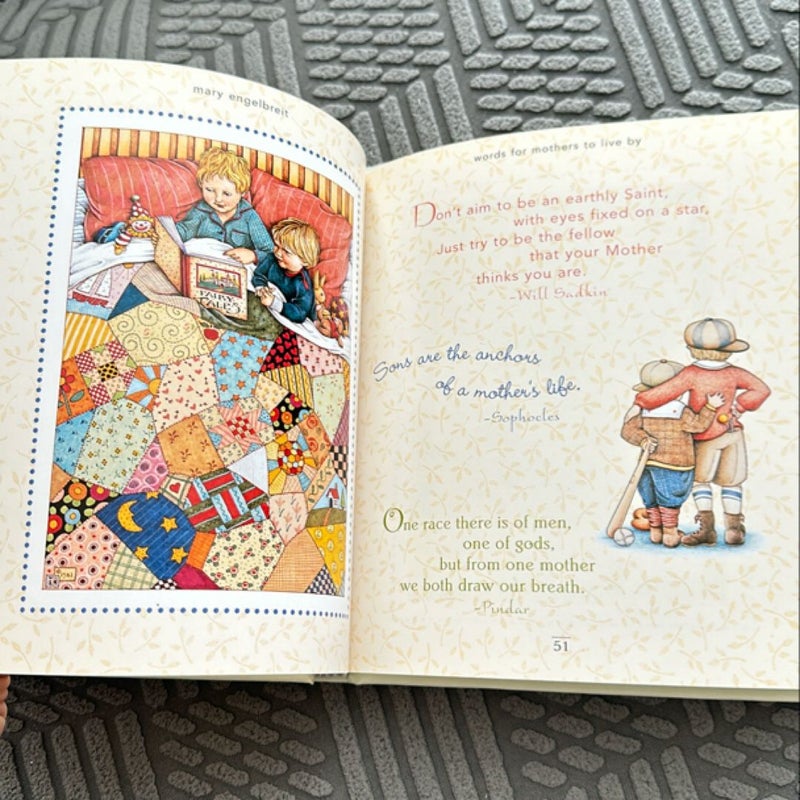 mary engelbreit
FAIRY
TALES
words for mothers to live by
Don't aim to be an earthly Saint,
with eyes fixed on a star,
Just try to be the fellow
that your Mother
thinks you are.
-Will Sadkin
Sons are the anchors
of a mother's life.
-Sophocles
One race there is of men,
one of gods,
but from one mother
we both draw our breath.
-Pindar
51